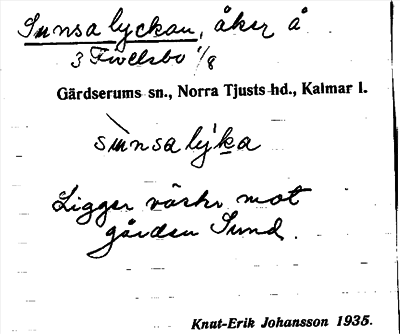 Sunsalyckan, åker å
3 Fivelsbo 1/8
Gärdserums sn., Norra Tjusts hd., Kalmar l.
sùnsalýka
Ligger väster mot
gården Sund.
Knut-Erik Johansson 1935.